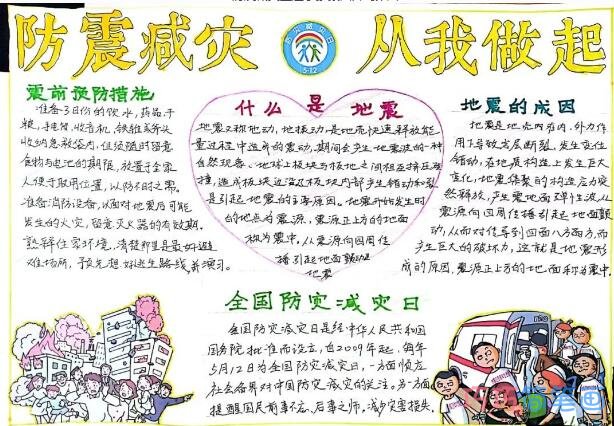 防震减灾 从我做起
防灾减灾日
5·12
震前预防措施
准备3日份的饮水,药品,干
粮,手电筒,收音机
收纳急救袋内,但须随时留意
食物与电池的期限,放置于全家
人便于取用位置,以防
准备消防设备,以面对地震后可能
发生的火灾,留意灭火器的有效期.
熟释住家环境,清楚那里是最好避
难场所,预先想好逃生路线,并演习。
什么是地震
地震又称地动,地振动,是地壳快速释放能
量过程中造成的震动,期间会产生地震波的一种
自然现象。地球上板块与板块之间相互挤压碰
撞,造成板块边沿及板块内部产生错动和裂
是引起地震的主要原因。地震开始发生时
的地点为震源,震源正上方的地面
称为震中,从受源向四周传
播引起地面颤动是
地震
地震的成因
地震是地壳内在内、外力作
用下导致岩层断裂、发生变位
错动,在地质构造上发生巨大
变化,地震集聚的构造应力突
然释放,产生震地面弹性波,从
震源向四周传播引起地面颤
动,从而对传导到四面八方而
产生巨大的破坏力,这就是地震形
成的原因,震源正上方的地面称为震中.
全国防灾减灾日
全国防灾减灾日是经中华人民共和国
国务院批准而设立,自2009年起,每年
5月12日为全国防灾减灾日,一方面顺应
社会各界对中国防灾减灾的关注。另一方面
提醒国民前事不忘、后事之师。减少灾害损失。